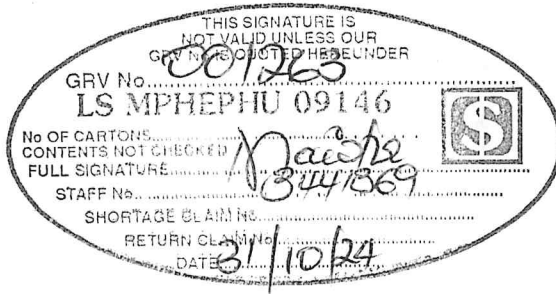 THIS SIGNATURE IS
NOT VALID UNLESS OUR
GRV No IS QUOTED HEREUNDER
GRV No. 001263
LS MPHEPHU 09146
No OF CARTONS
CONTENTS NOT CHECKED
FULL SIGNATURE
STAFF No. 3441369
SHORTAGE CLAIM No.
RETURN CLAIM No.
DATE 31/10/24
S